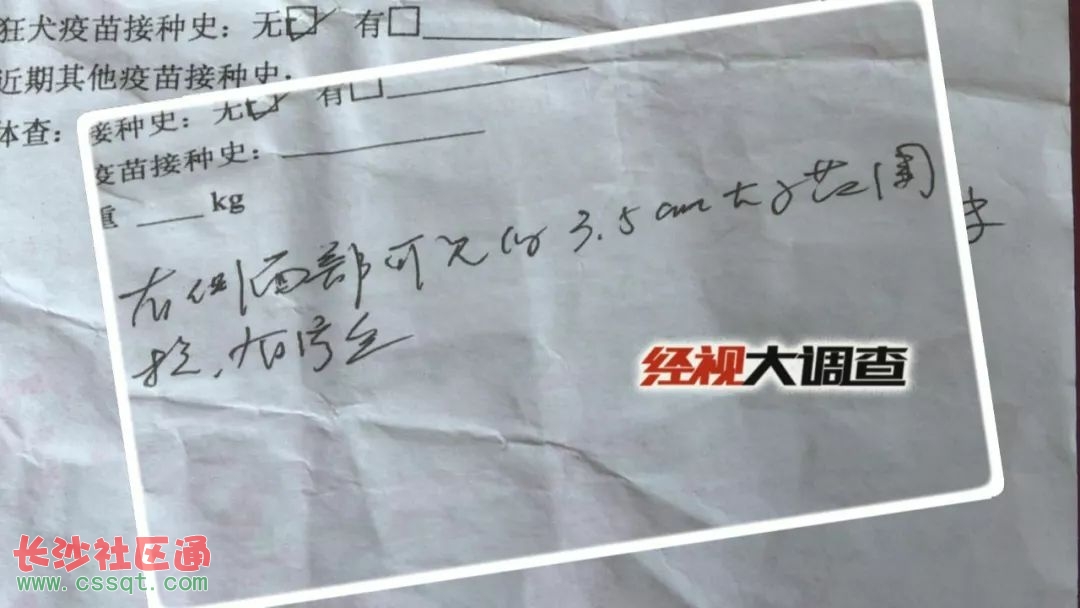 狂犬疫苗接种史：无☑ 有□
近期其他疫苗接种史：
体查：
接种史：无☑ 有□
疫苗接种史：
重 kg
右侧面部可见约3.5cm大小范围
经视大调查
长沙社区通
www.cssqt.com